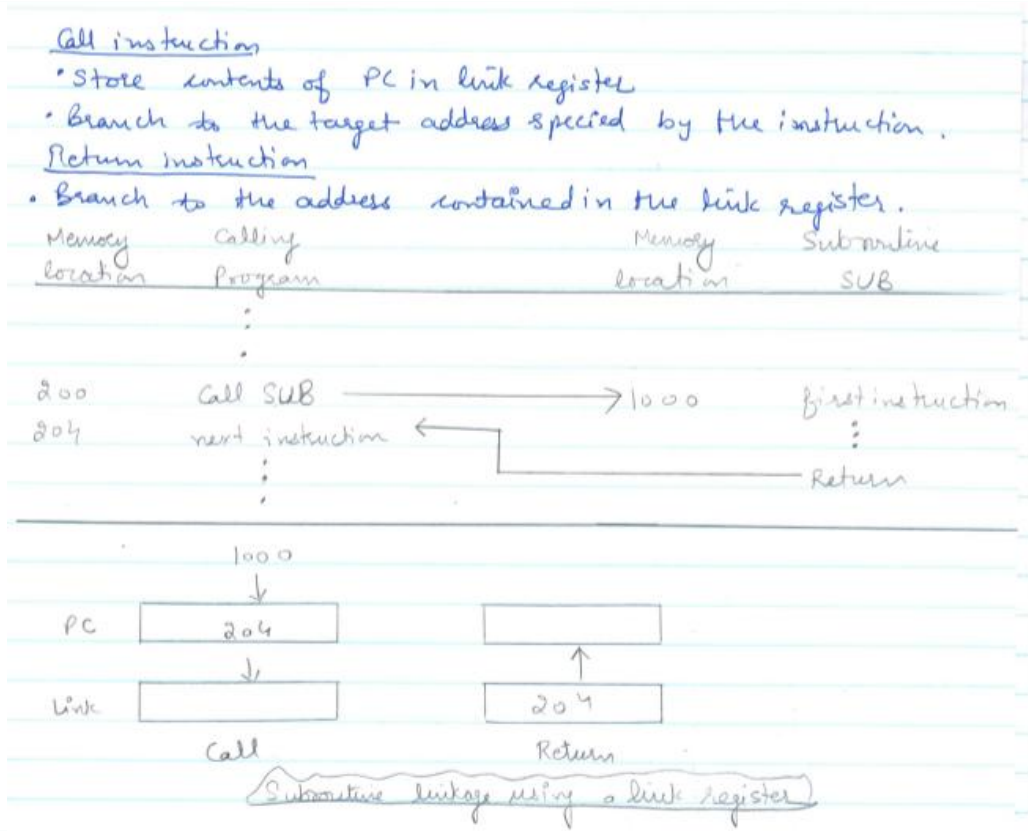 Call instruction
• Store contents of PC in link register
• Branch to the target address specied by the instruction.
Return instruction
• Branch to the address contained in the link register.
Memory Calling Memory Subroutine
location Program location SUB
200 Call SUB 1000 first instruction
204 next instruction
Return
1000
PC 204
Link 204
Call Return
Subroutine linkage using a link register